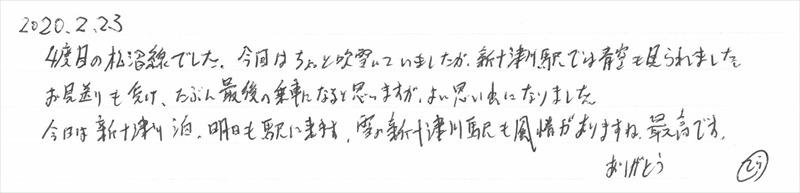 2020.2.23
4度目の札沼線でした。今回はちょっと吹雪いていましたが、新十津川駅では青空も見られました。
お見送りも受け、たぶん最後の乗車になると思いますが、よい思い出になりました。
今日は新十津川泊。明日も駅に来ます。雪の新十津川駅も風情がありますね。最高です。
ありがとう